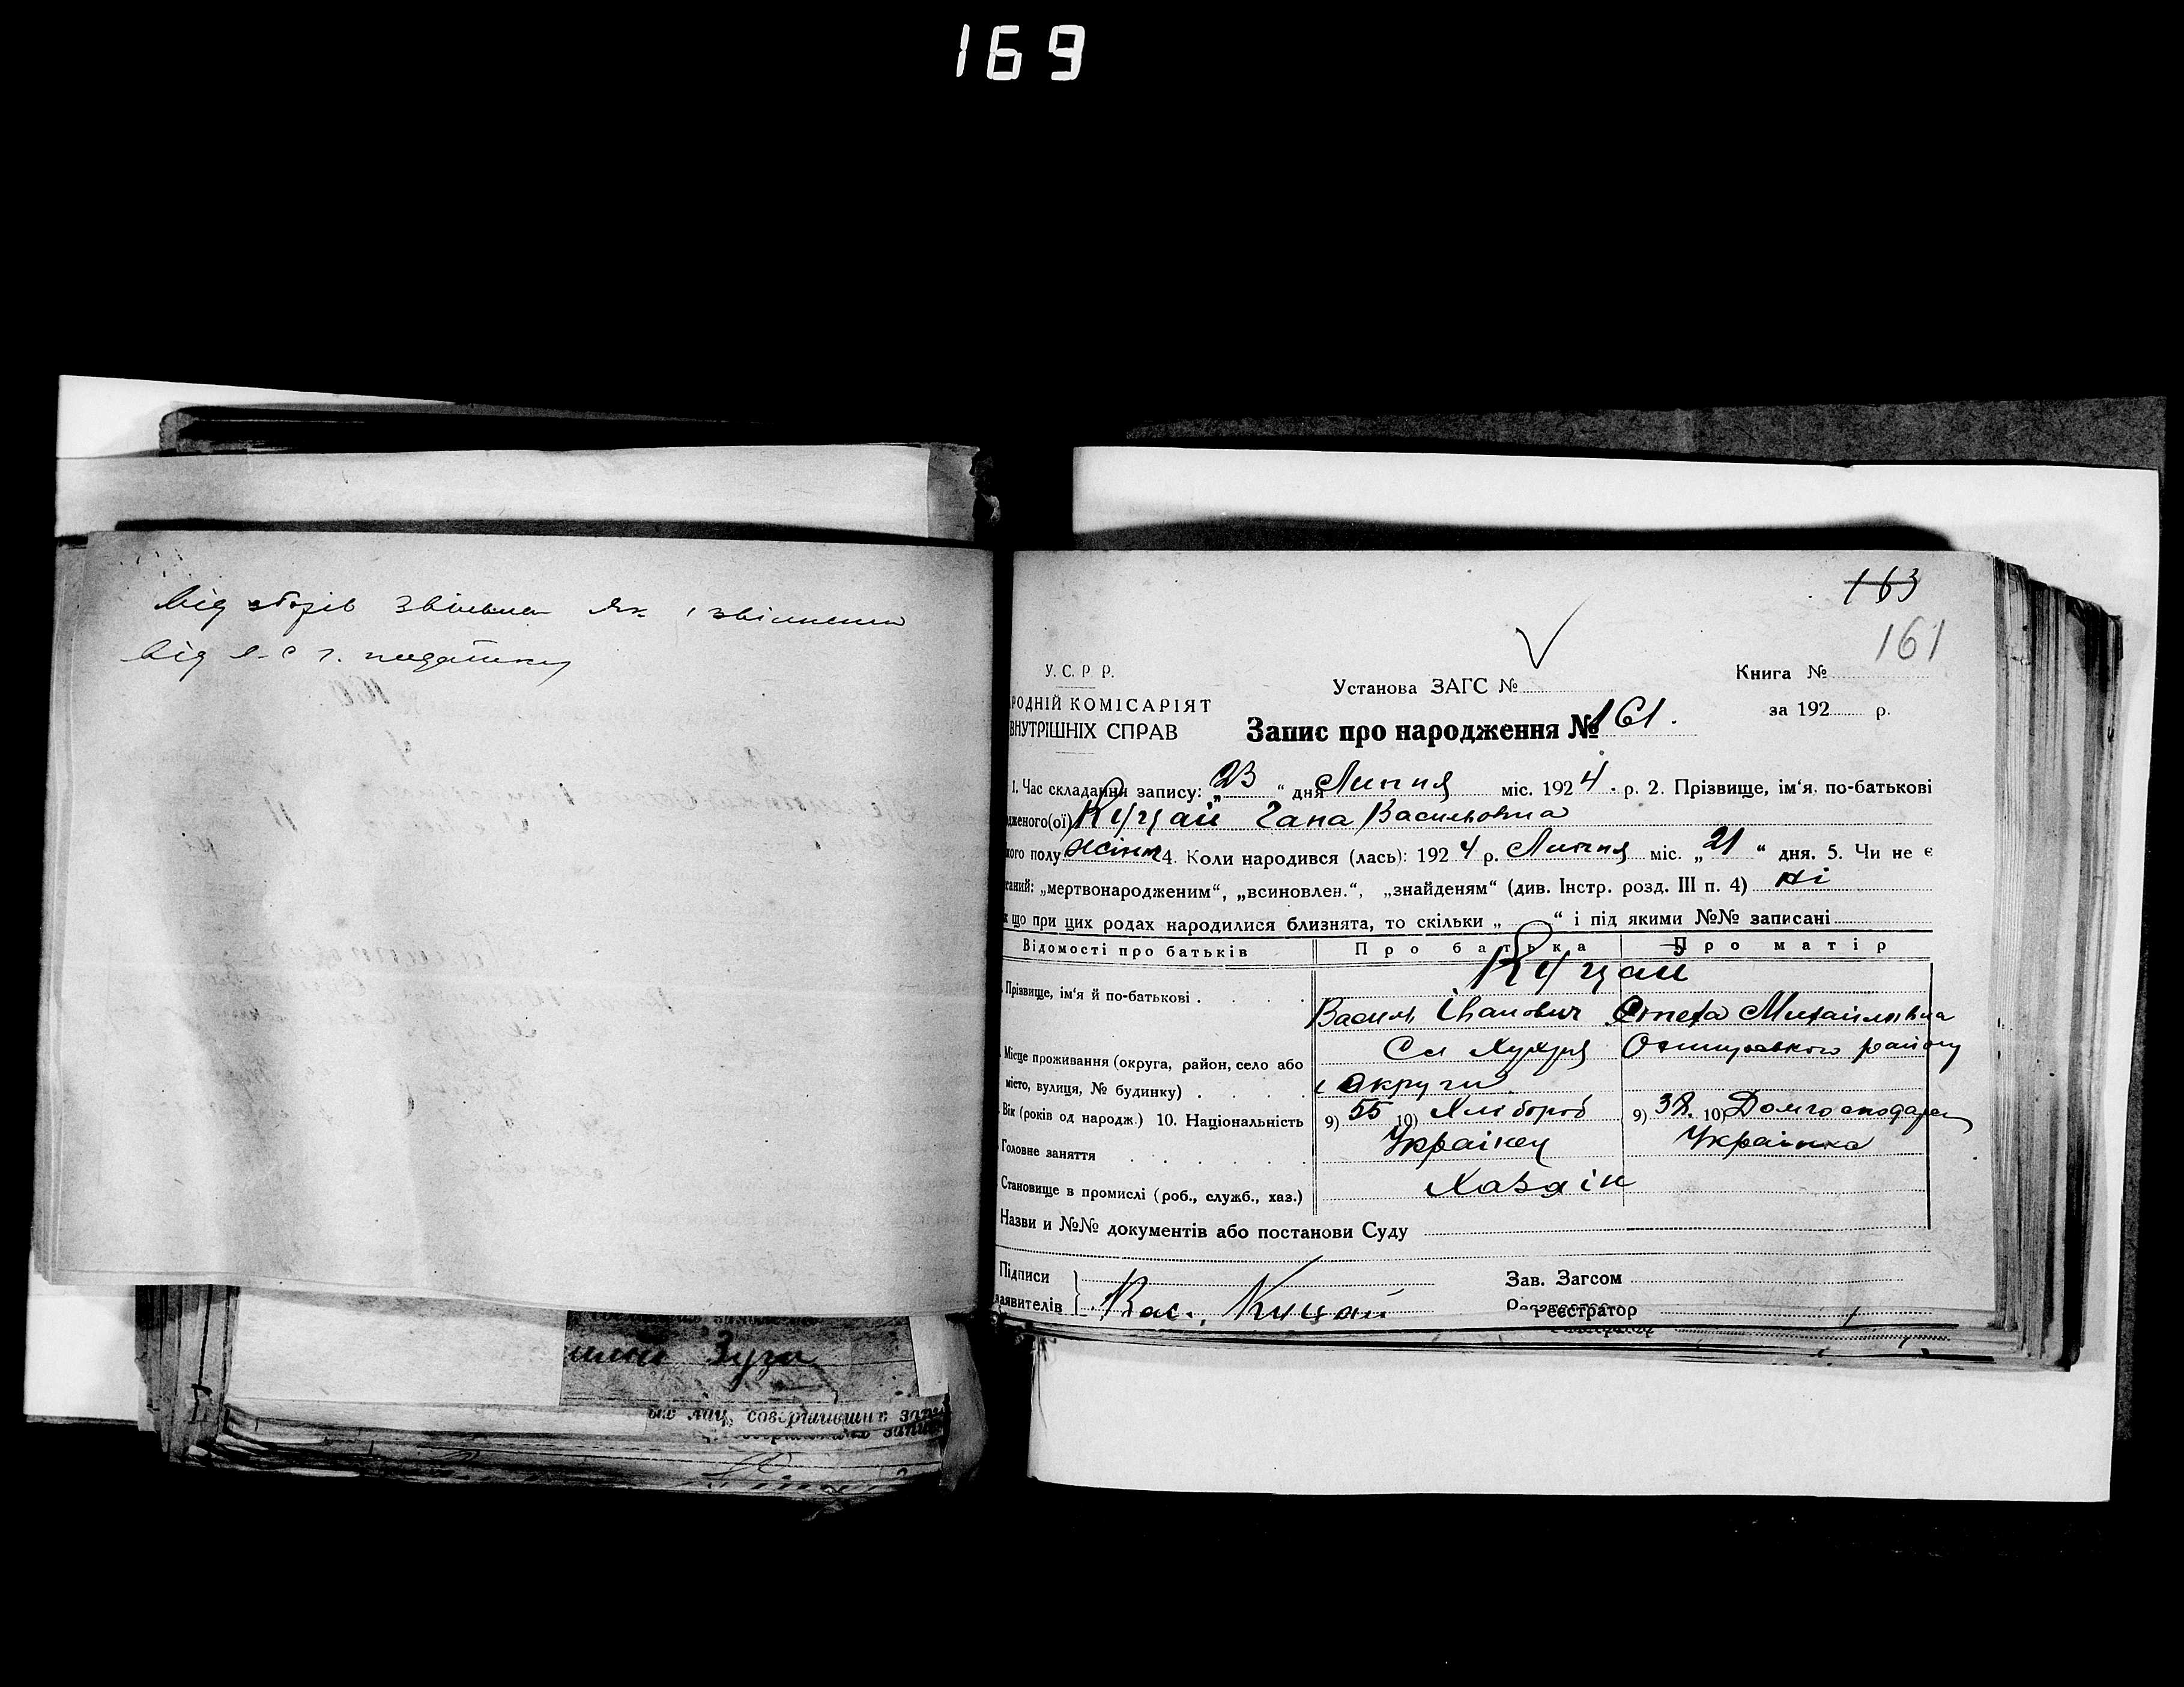 169
від зборів звільнен як і звільнени
від с. г. податку
163
161
У. С. Р. Р.
РОДНІЙ КОМІСАРІЯТ
ВНУТРІШНІХ СПРАВ
Установа ЗАГС №
Книга №
за 192 р.
Запис про народження № 161.
1. Час складання запису: „23“ дня Липня міс. 1924. р. 2. Прізвище, ім‘я, по-батькові
дженого(ої) Куцай Гапа Васильовна
ого полу жіноч 4. Коли народився (лась): 1924 р. Липня міс. „21“ дня. 5. Чи не є
саний: „мертвонародженим“, „всиновлен.“, „знайденям“ (див. Інстр. розд. III п. 4) ні
що при цих родах народилися близнята, то скільки „ “ і під якими №№ записані
Відомості про батьків Про батька Про матір
Куцай
Прізвище, ім‘я й по-батькові
Василь Іванович Стеха Михайлівна
Місце проживання (округа, район, село або
місто, вулиця, № будинку)
Сл району
і Округи
Вік (років од народж.) 10. Національність 9) 55 10) Хлібороб 9) 38. 10) Домгосподарка
Головне заняття Українец Українка
Становище в промислі (роб., служб., хаз.) Хазяін
Назви и №№ документів або постанови Суду
Підписи
заявителів Вас. Куцай
Зав. Загсом
Реєстратор
Зуза
лиц, совершивших запи